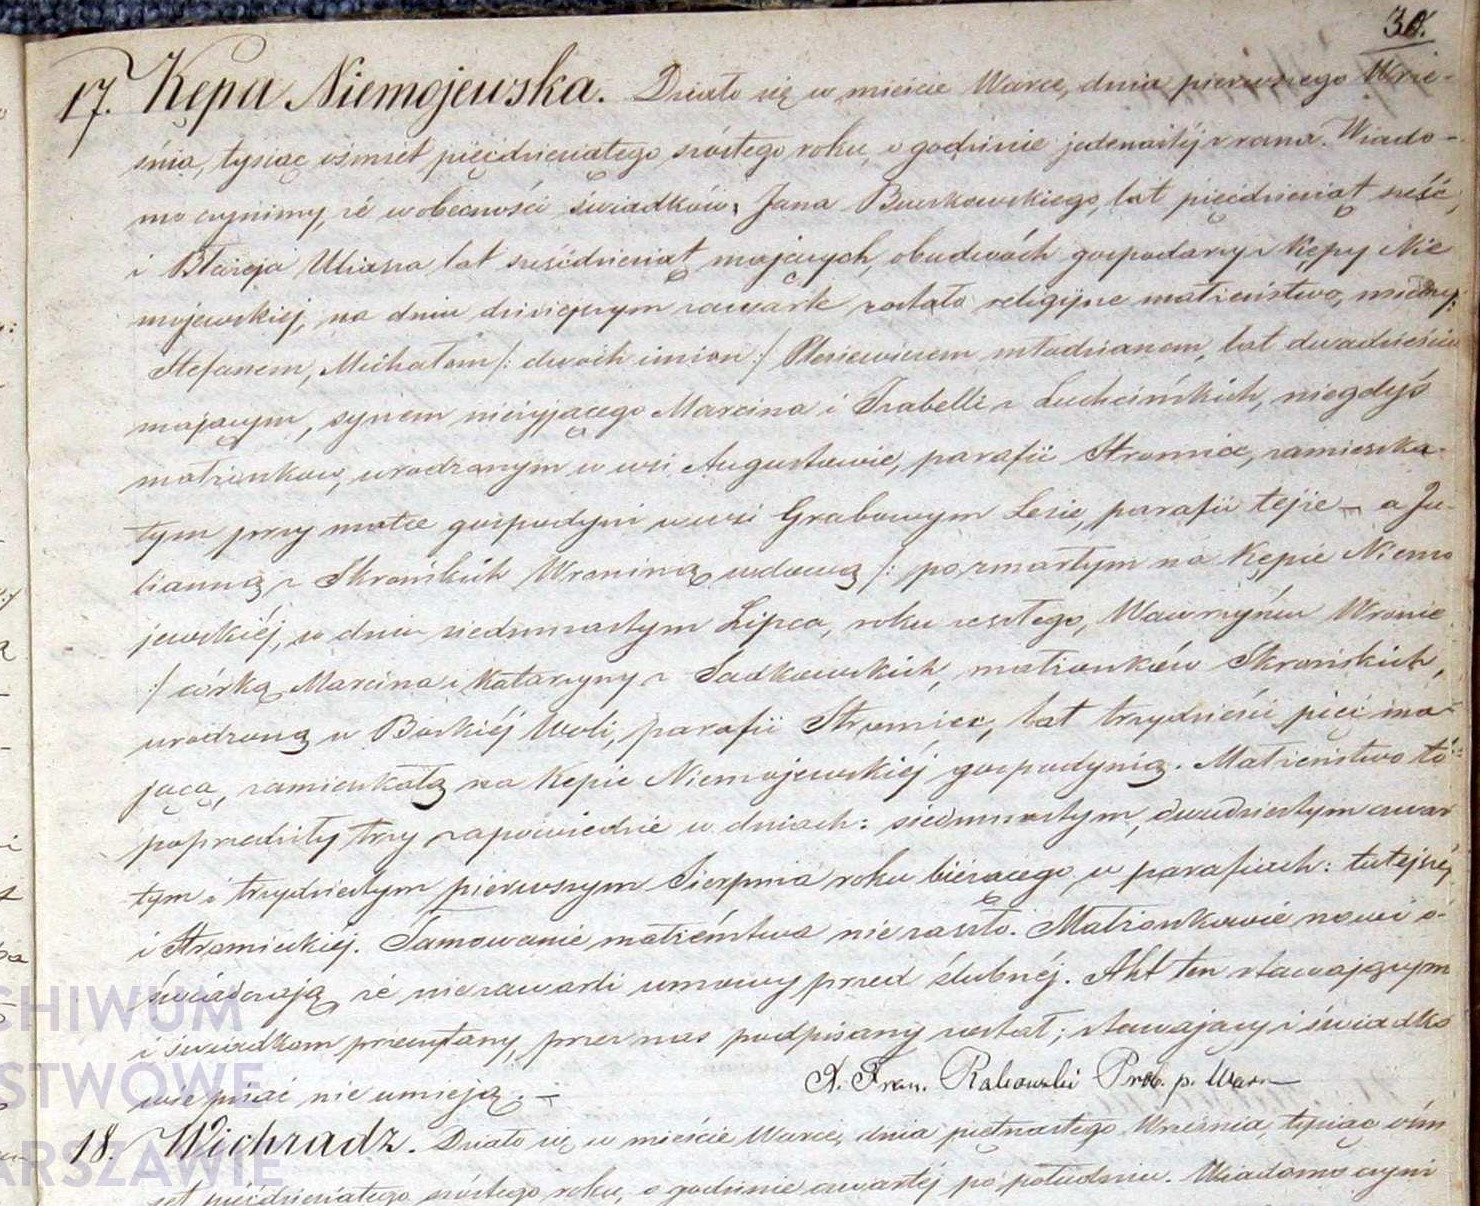 30.
17. Kępa Niemojewska. Działo się w mieście Warce, dnia pierwszego Wrze-
śnia, tysiąc ośmset pięćdziesiątego szóstego roku, o godzinie jedenastéj z rana. Wiado-
mo czynimy, że w obecności świadków, Jana Burkowskiego, lat pięćdziesiąt sześć,
i Błażeja Uliasza lat sześćdziesiąt mających, obudwóch gospodarzy z Kępy Nie
mojewskiéj, na dniu dzisiejszym zawarte zostało religijne małżeństwo, między:
Stefanem, Michałem /: dwóch imion :/ Plesiewiczem młodzianem, lat dwadzieścia
mającym, synem nieżyjącego Marcina i Izabelli z Luchcińskich, niegdyś
małżonków, urodzonym w wsi Augustowie, parafii Stromiec, zamieszka-
łym przy matce gospodyni w wsi Grabowym Lesie, parafii tejże — a Ju-
lianną z Skrońskich Wroniną wdową /: po zmarłym na Kępie Niemo
jewskiéj, w dniu siedmnastym Lipca, roku zeszłego, Wawrzyńcu Wronie
:/ córką Marcina i Katarzyny z Sadkowskich, małżonków Skrońskich,
urodzoną w Boskiéj Woli, parafii Stromiec, lat trzydzieści pięć ma-
jącą, zamieszkałą na Kępie Niemojewskiéj gospodynią. Małżeństwo to
poprzedziły trzy zapowiedzie w dniach: siedmnastym, dwudziestym czwar
tym i trzydziestym pierwszym Sierpnia roku bieżącego w parafiach: tutejszéj
i Stromieckiéj. Tamowanie małżeństwa nie zaszło. Małżonkowie nowi o-
świadczają że niezawarli umowy przed ślubnéj. Akt ten stawającym
i świadkom przeczytany, przez nas podpisany został; stawający i świadko
wie pisać nie umieją. —
X. Fran. Rakowski Prob. p. Warc
18. Wichradz. Działo się w mieście Warce, dnia piętnastego Września, tysiąc ośm
set pięćdziesiątego szóstego roku, o godzinie czwartéj po południu. Wiadomo czyni
CHIWUM
STWOWE
ARSZAWIE